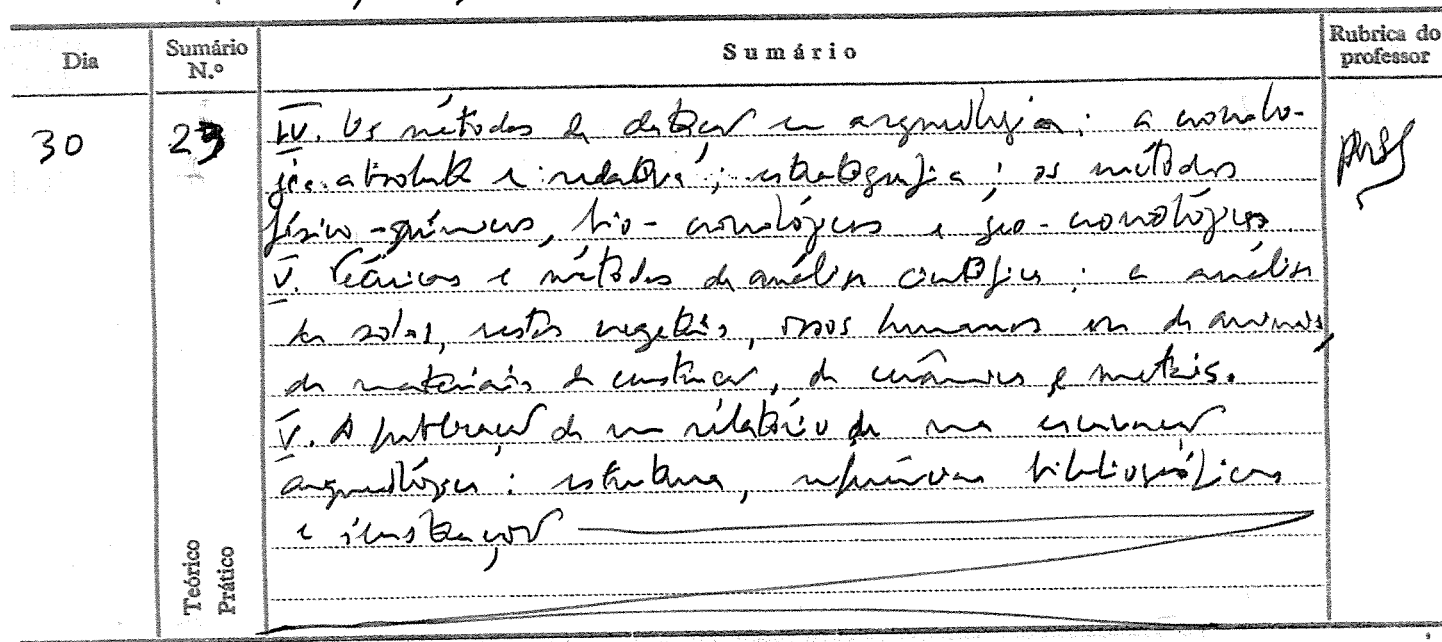 Dia
Sumário N.º
Sumário
Rubrica do professor
30
23
IV. Os métodos de datação em arqueologia: a cronolo-
gia absoluta e relativa; estratigrafia; os métodos
físico-químicos, bio-cronológicos e geo-cronológicos.
V. Técnicas e métodos de análise científica: a análise
de solos, restos vegetais, ossos humanos ou de animais,
de materiais de construção, de cerâmicas e metais.
V. A publicação de um relatório de uma escavação
arqueológica: estrutura, referências bibliográficas
e ilustrações
Teórico
Prático